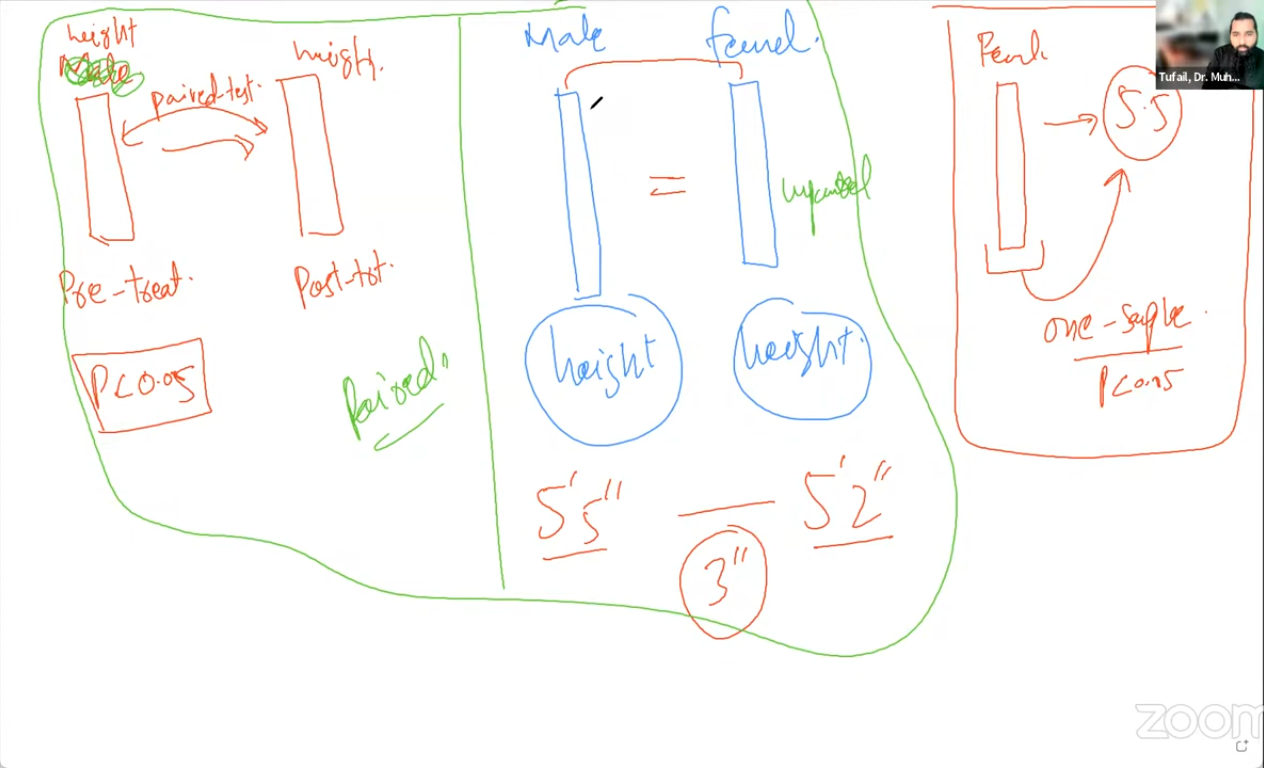 height
height.
paired-test.
Pre-treat.
Post-trt.
P<0.05
Paired.
Male
=
unpaired
height
height.
5'5"
5'2"
3"
5.5
one-sample.
P<0.05
Tufail, Dr. Muh...
zoom